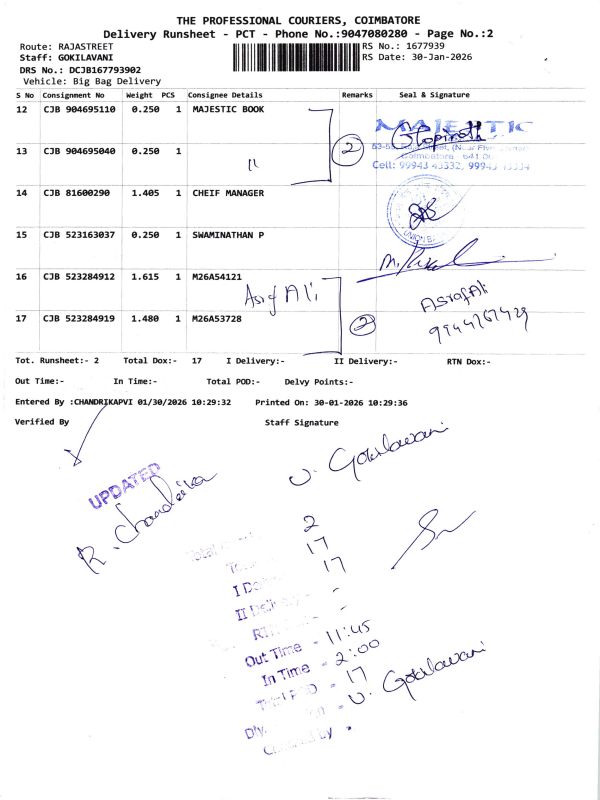 THE PROFESSIONAL COURIERS, COIMBATORE
Delivery Runsheet - PCT - Phone No.:9047080280 - Page No.:2
Route: RAJASTREET RS No.: 1677939
Staff: GOKILAVANI RS Date: 30-Jan-2026
DRS No.: DCJB167793902
Vehicle: Big Bag Delivery
S No Consignment No Weight PCS Consignee Details Remarks Seal & Signature
12 CJB 904695110 0.250 1 MAJESTIC BOOK
MAJESTIC
13 CJB 904695040 0.250 1 " 2
Coimbatore, 641 0
Cell: 99943 43332, 99943
14 CJB 81600290 1.405 1 CHEIF MANAGER
15 CJB 523163037 0.250 1 SWAMINATHAN P
16 CJB 523284912 1.615 1 M26A54121
Asraf Ali Asraf Ali
17 CJB 523284919 1.480 1 M26A53728 2
Tot. Runsheet:- 2 Total Dox:- 17 I Delivery:- II Delivery:- RTN Dox:-
Out Time:- In Time:- Total POD:- Delvy Points:-
Entered By :CHANDRIKAPVI 01/30/2026 10:29:32 Printed On: 30-01-2026 10:29:36
Verified By Staff Signature
UPDATED
R. Chandrika
U. Gokilavani
Total 2
17
I De 17
II Delivery -
RT -
Out Time - 11:45
In Time - 2:00
Total POD - 17
Dly. - U. Gokilavani
by -